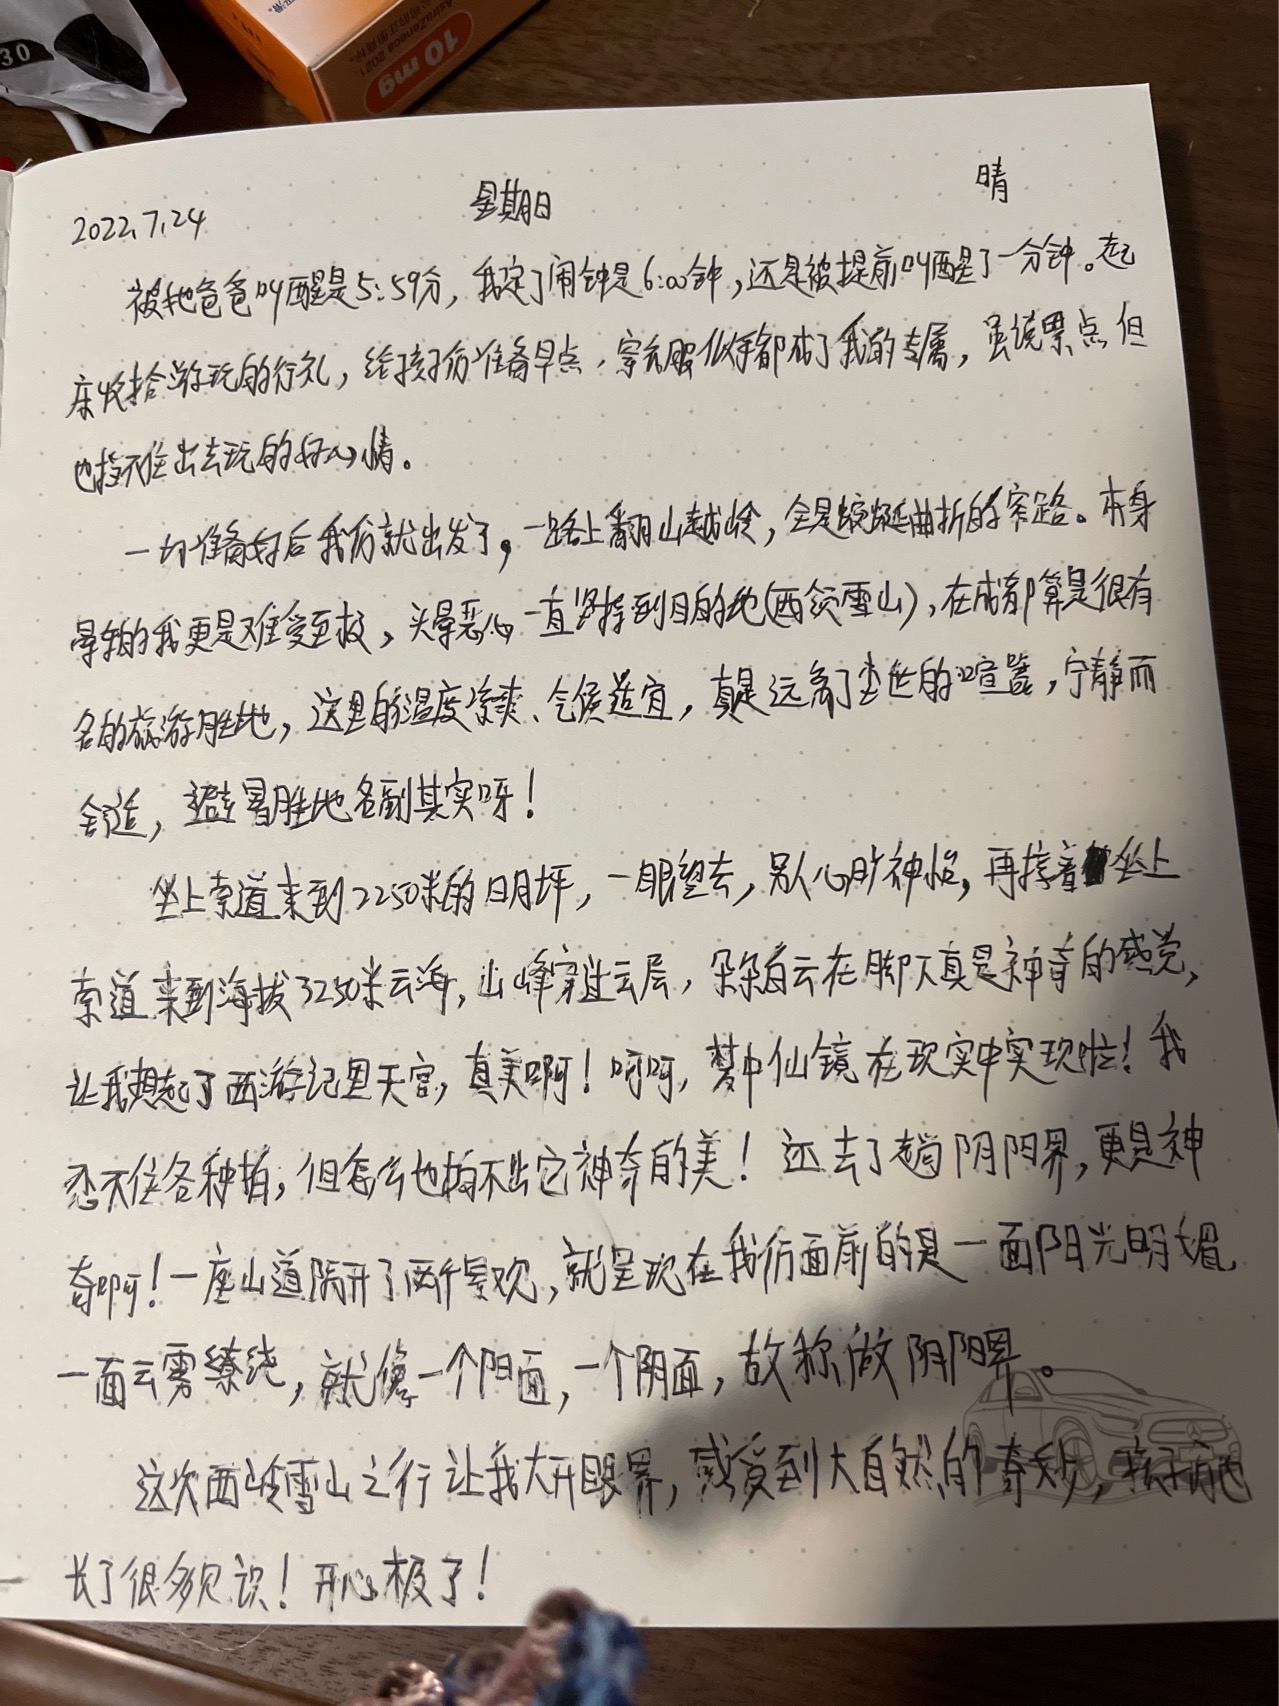 30
AstraZeneca 2021
10 mg
2022.7.24 星期日 晴
被他爸爸叫醒是5:59分，我定了闹钟是6:00钟，还是被提前叫醒了一分钟。起
床收拾游玩的行礼，给孩子们准备早点，穿衣服似乎都成了我的专属，虽说累点但
也挡不住出去玩的好心情。
一切准备好后我们就出发了，一路上翻山越岭，全是蜿蜒曲折的窄路。本身
晕车的我更是难受至极，头晕恶心一直坚持到目的地(西岭雪山)，在成都算是很有
名的旅游胜地，这里的温度凉爽、气候适宜，真是远离了尘世的喧嚣，宁静而
舒适，避暑胜地名副其实呀！
坐上索道来到2250米的日月坪，一眼望去，另人心旷神怡，再接着坐上
索道来到海拔3250米云海，山峰穿过云层，朵朵白云在脚下真是神奇的感觉，
让我想起了西游记里天宫，真美啊！呵呵，梦中仙镜在现实中实现啦！我
忍不住各种拍，但怎么也拍不出它神奇的美！还去了趟阴阳界，更是神
奇啊！一座山道隔开了两个景观，就呈现在我们面前的是一面阳光明媚
一面云雾缭绕，就像一个阳面，一个阴面，故称做阴阳界。
这次西岭雪山之行让我大开眼界，感受到大自然的奇妙，孩子们也
长了很多见识！开心极了！